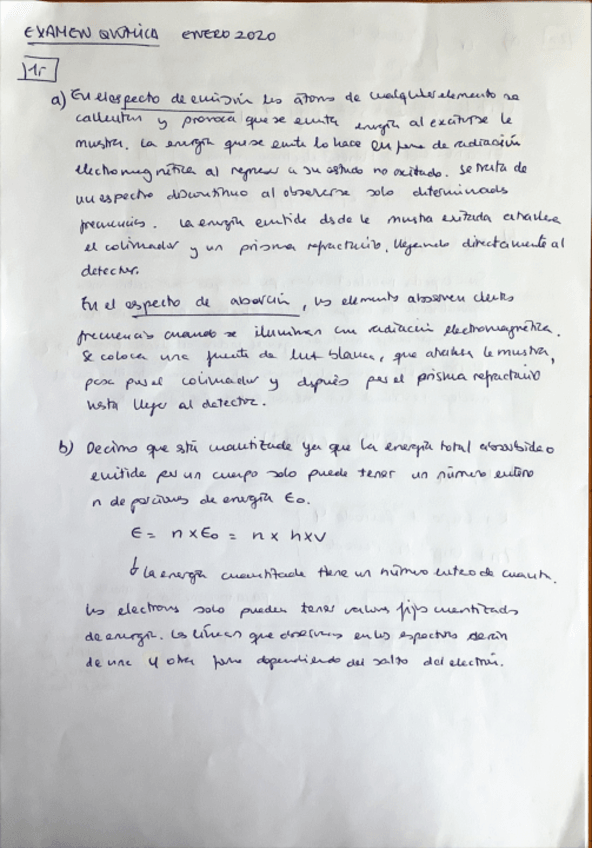 EXAMEN QUÍMICA ENERO 2020
1.
a) En el espectro de emisión los átomos de cualquier elemento se
calientan y provoca que se emita energía al excitarse la
muestra. La energía que se emite lo hace en forma de radiación
electromagnética al regresar a su estado no excitado. Se trata de
un espectro discontinuo al observarse solo determinadas
frecuencias. La energía emitida desde la muestra excitada atraviesa
el colimador y un prisma refractario, llegando directamente al
detector.
En el espectro de absorción, los elementos absorven ciertas
frecuencias cuando se iluminan con radiación electromagnética.
Se coloca una fuente de luz blanca, que atraviesa la muestra,
pasa por el colimador y después por el prisma refractario
hasta llegar al detector.
b) Decimos que está cuantizada ya que la energía total absorbida o
emitida por un cuerpo solo puede tener un número entero
n de porciones de energía E₀.
E = n x E₀ = n x h x ν
↳ La energía cuantizada tiene un número entero de cuantos.
Los electrones solo pueden tener valores fijos cuantizados
de energía. Las líneas que observamos en los espectros serán
de una u otra forma dependiendo del salto del electrón.